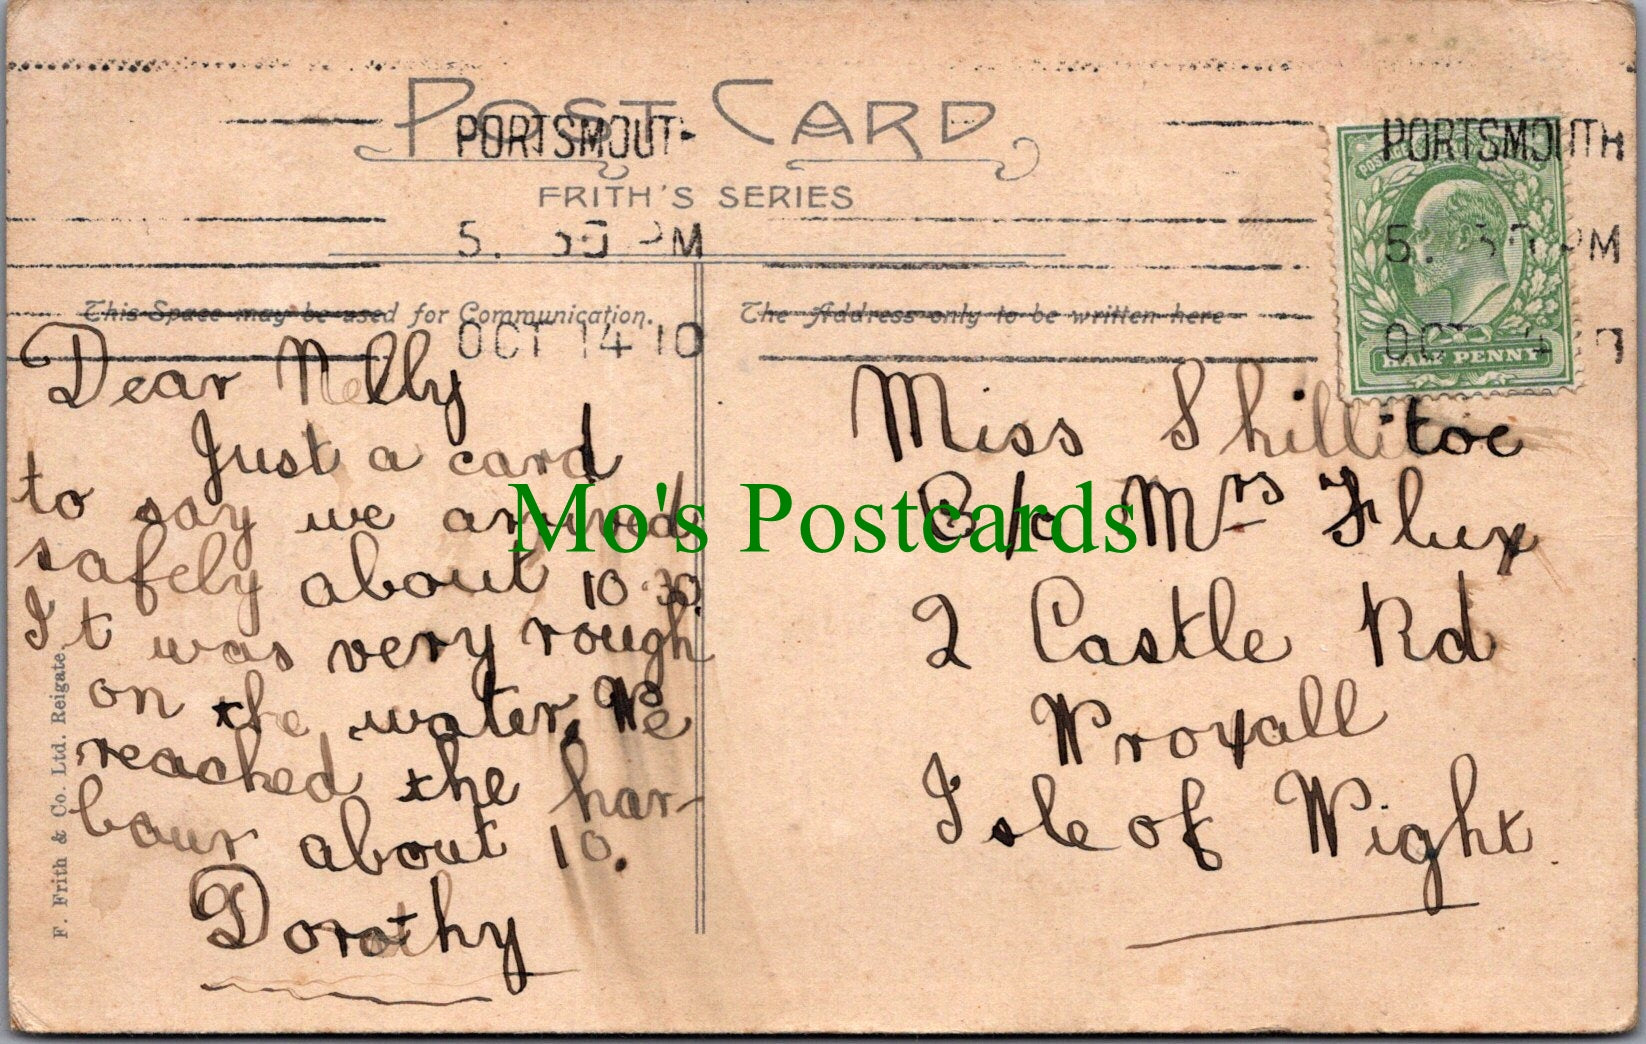 POST CARD
FRITH'S SERIES
PORTSMOUTH
5. PM
OCT 14 10
PORTSMOUTH
5. PM
OCT
POSTAGE
HALF PENNY
This Space may be used for Communication.
The Address only to be written here
Dear Nelly
Just a card
to say we arrived
safely about 10.30.
It was very rough
on the water. We
reached the har-
bour about 10.
Dorothy
Miss Shillitoe
Mrs Flux
2 Castle Rd
Wroxall
Isle of Wight
F. Frith & Co. Ltd. Reigate.
Mo's Postcards